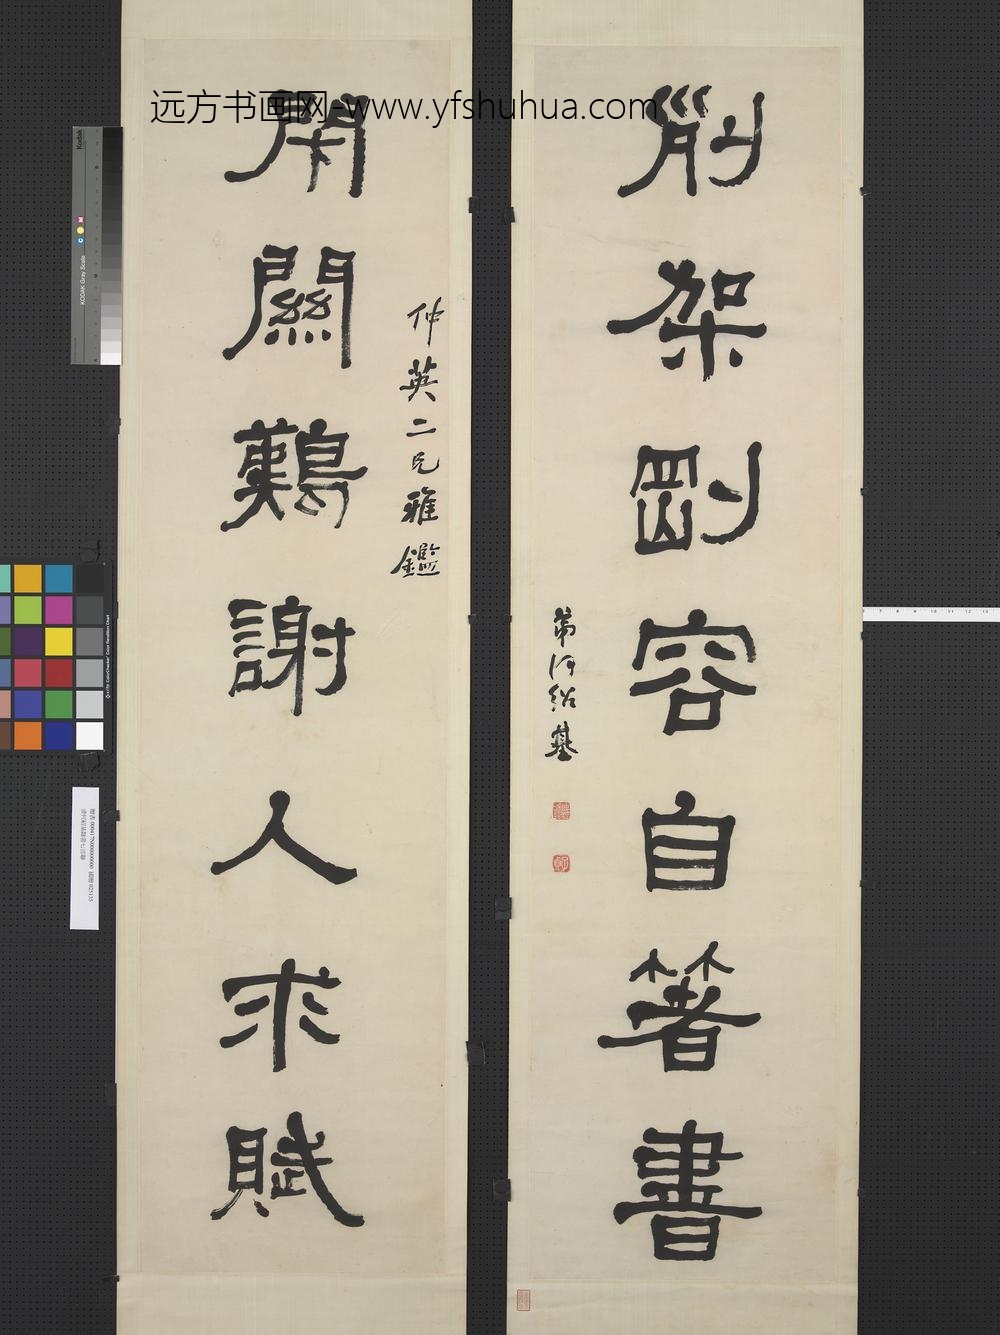 远方书画网-www.yfshuhua.com
削架剛容自箸書
弟何紹基
仲英二兄雅鑑
閉關難謝人求賦
Kodak
KODAK Gray Scale
C Y M